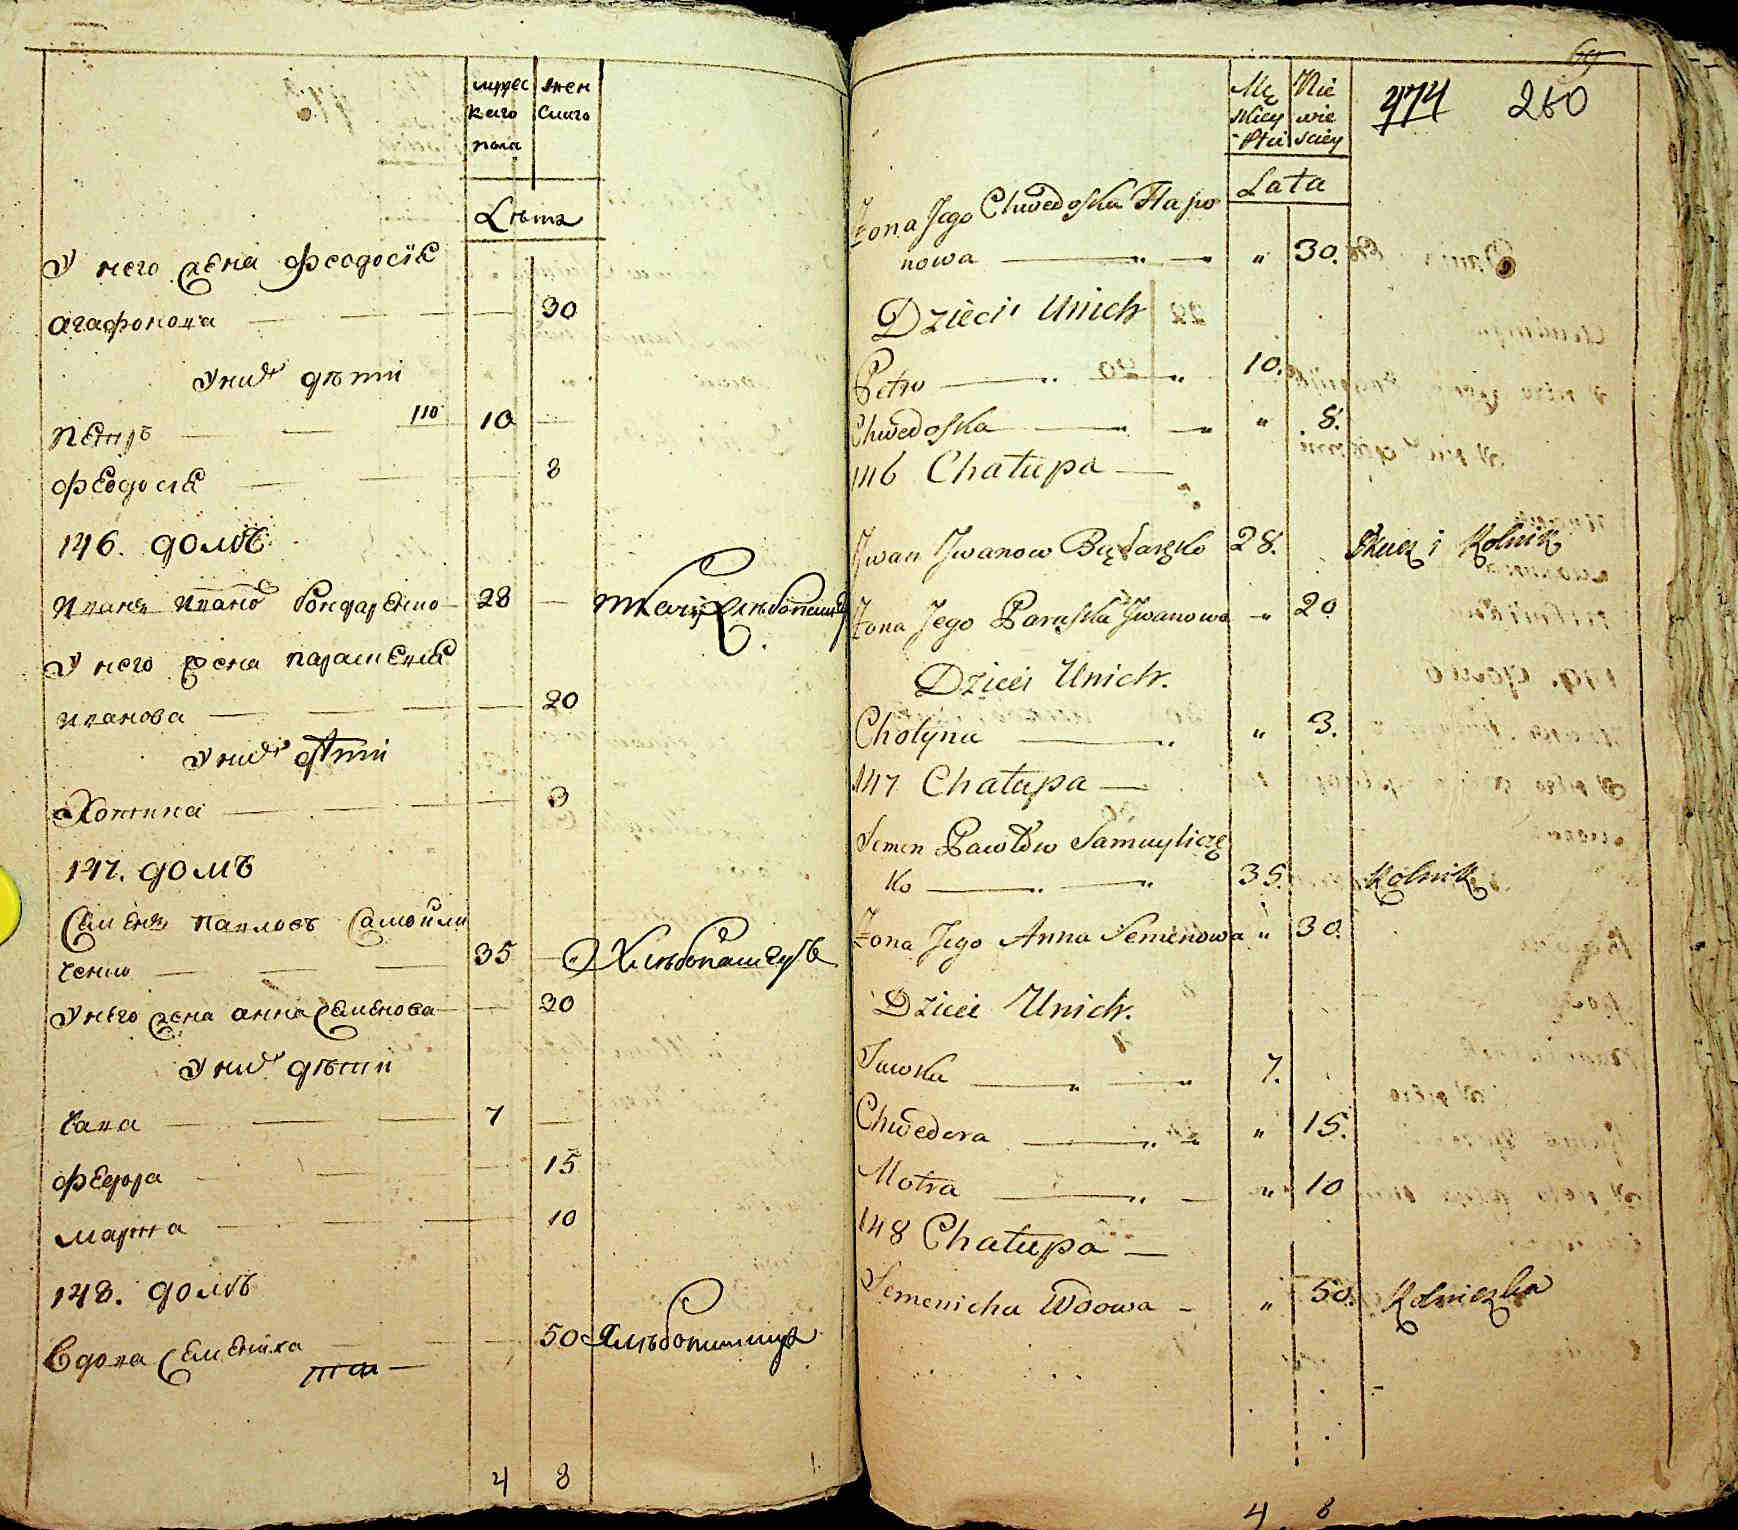 мужес
каго
пола
жен
скаго
Лѣта
У него жена феодосія
агафонова — 30
У них дѣти
Петръ — 110 10 —
феодосія — 8
146. домъ
Иванъ Ивановъ бондаренко — 28 — ткачъ хлѣбопашецъ
У него жена параскевія
Иванова — 20
У них дѣти
Хотина — 3
147. домъ
Семенъ Павловъ Самойли
ченко — 35 — Хлѣбопашецъ
У него жена анна Семенова — 20
У них дѣти
Сава — 7 —
федора — 15
марта — 10
148. домъ
Вдова Семениха — 50 хлѣбопашица
4 8
69
Mę
skiey
Płci
Nie
wie
sciey
474 260
Lata
Żona Jego Chwedoska Hapo
nowa — " 30.
Dzieci Unich
Petro — 10.
Chwedoska — " 8.
146 Chałupa —
Jwan Jwanow Bądaręko 28. Tkacz i Rolnik
Żona Jego Paraska Jwanowa " 20
Dzieci Unich.
Chotyna — " 3.
147 Chałupa —
Semen Pawłow Samuyliczę
ko — 35. Rolnik
Żona Jego Anna Semenowa " 30.
Dzieci Unich.
Sawka — 7.
Chwedora — " 15.
Motra — " 10
148 Chałupa —
Semenicha Wdowa — " 50. Rolniczka
4 8